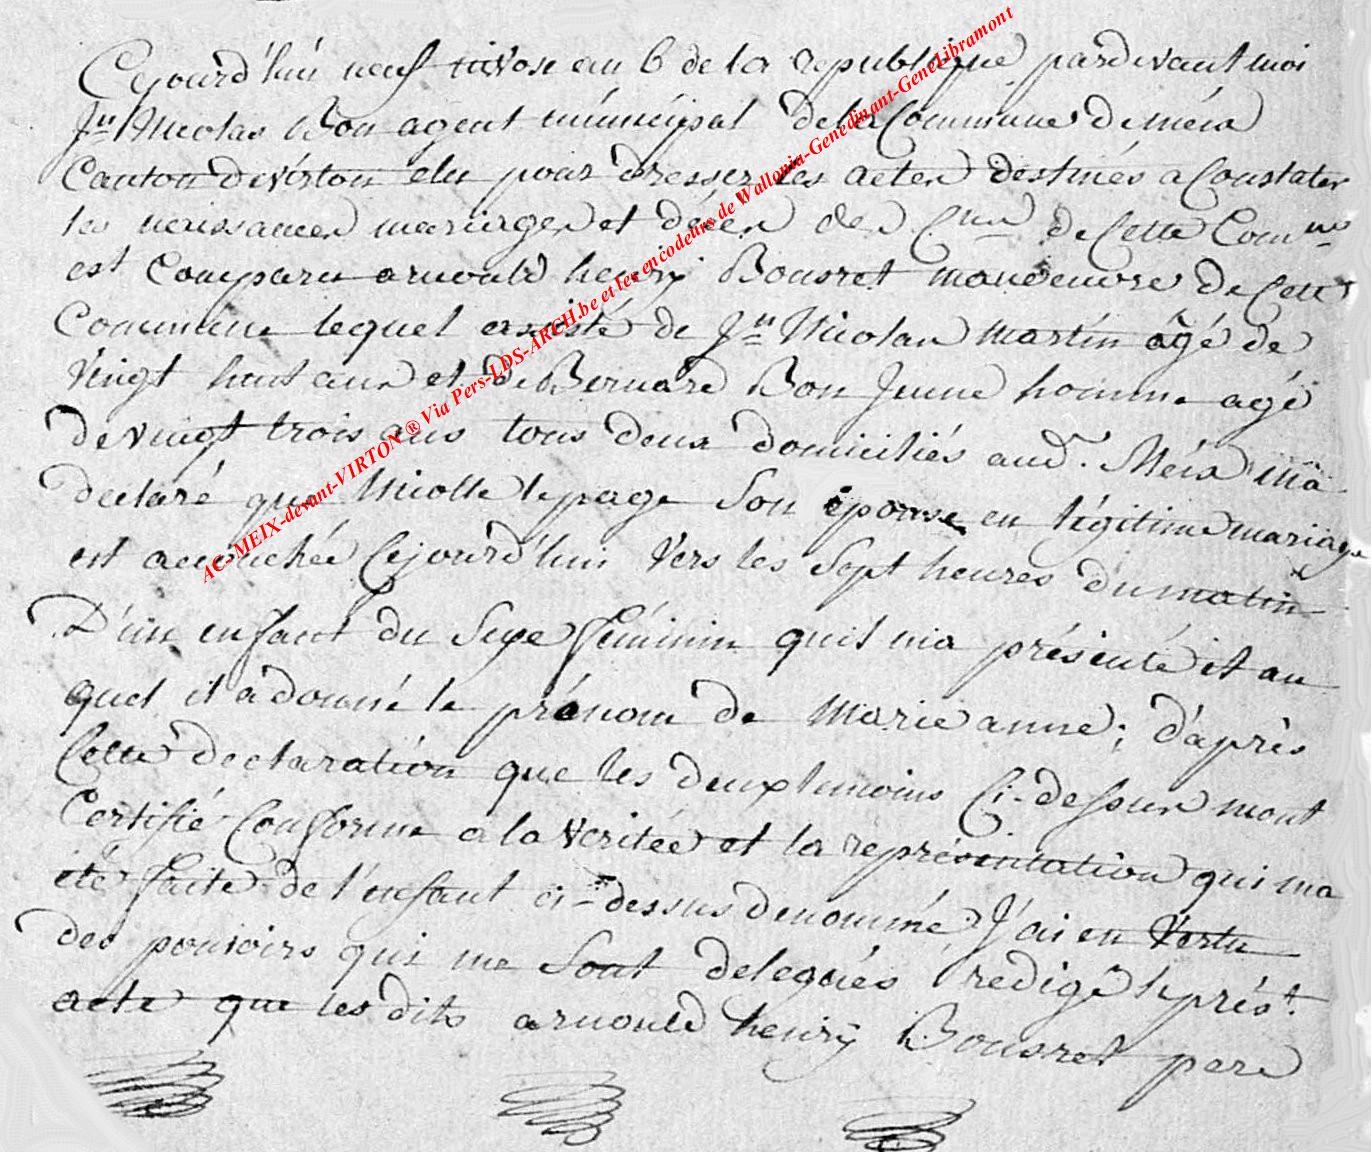 Cejourd'hui neuf nivose an 6 de la republique pardevant moi
Jn Nicolas Bon agent municipal de la Commune de Méix
Canton de virton elu pour dresser les actes destinés a Constater
les naissances mariages et décès des Cens de Cette Commne
est Comparu arnould henry Bousret manoeuvre de Cette
Commune lequel assisté de Jn Nicolas martin âgé de
Vingt huit ans et de Bernard Bon Jeune homme agé
de vingt trois ans tous deux domiciliés aud. Méix ma
declaré que Nicolle lepage Son épouse en légitime mariage
est accouchée Cejourd'hui Vers les Sept heures du matin
D'un enfant du Sexe féminin quil ma présenté et au
quel il a donné le prénom de Marie anne; d'après
Cette declaration que les deux temoins Ci-dessus mont
Certifié Conforme a la Veritée et la représentation qui ma
été faite de l'enfant ci-dessus denommé, J'ai en Vertu
des pouvoirs qui me Sont delegués redigé le prést.
acte que les dits arnould henry Bousret pere
AC-MEIX-devant-VIRTON ® Via Pers-LDS-ARCH.be et les encodeurs de Wallonia-Genedinant-GeneLibramont